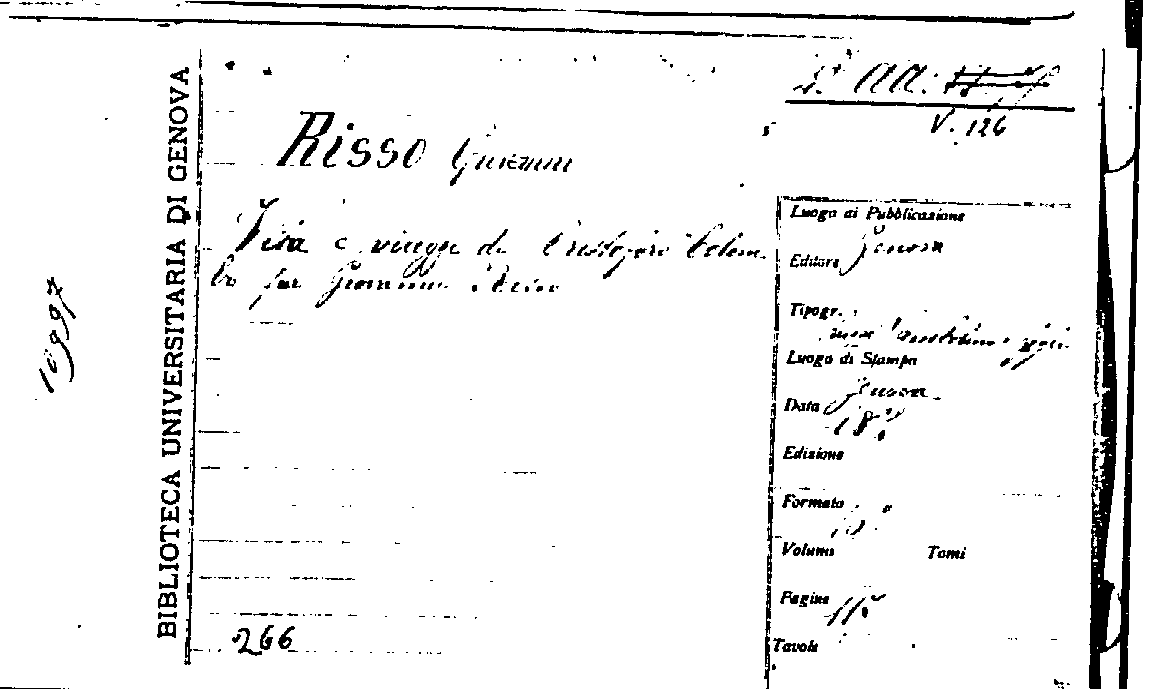 BIBLIOTECA UNIVERSITARIA DI GENOVA
10997
AA:
V. 126
Risso Giovanni
Vita e viaggi di Cristoforo Colom-
bo per Giovanni Risso
266
Luogo di Pubblicazione
Genova
Editore
Tipogr.
Luogo di Stampa
Genova
Data
Edizione
Formato
Volumi Tomi
Pagine
Tavole